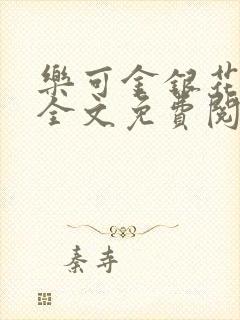 樂可金銀花
全文免費閱
秦寺